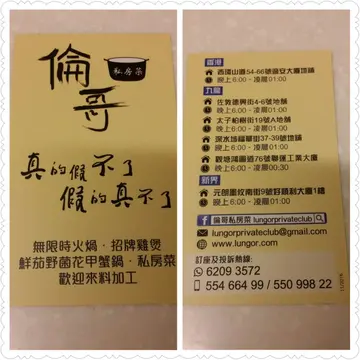 倫哥
私房菜
真的假不了
假的真不了
無限時火鍋．招牌雞煲
鮮茄野菌花甲蟹鍋．私房菜
歡迎來料加工
香港
西環山道54-66號遠安大廈地舖
晚上6:00 - 凌晨01:00
九龍
佐敦德興街4-6號地舖
晚上6:00 - 凌晨01:00
太子柏樹街19號A地舖
晚上6:00 - 凌晨01:00
深水埗福華街37-39號地舖
晚上6:00 - 凌晨01:00
觀塘鴻圖道76號聯運工業大廈
晚上6:00 - 凌晨00:30
新界
元朗壆坟南街9號好順利大廈1樓
晚上6:00 - 凌晨01:00
倫哥私房菜 lungorprivateclub
lungorprivateclub@gmail.com
www.lungor.com
訂座及投訴熱線:
6209 3572
554 664 99 / 550 998 22